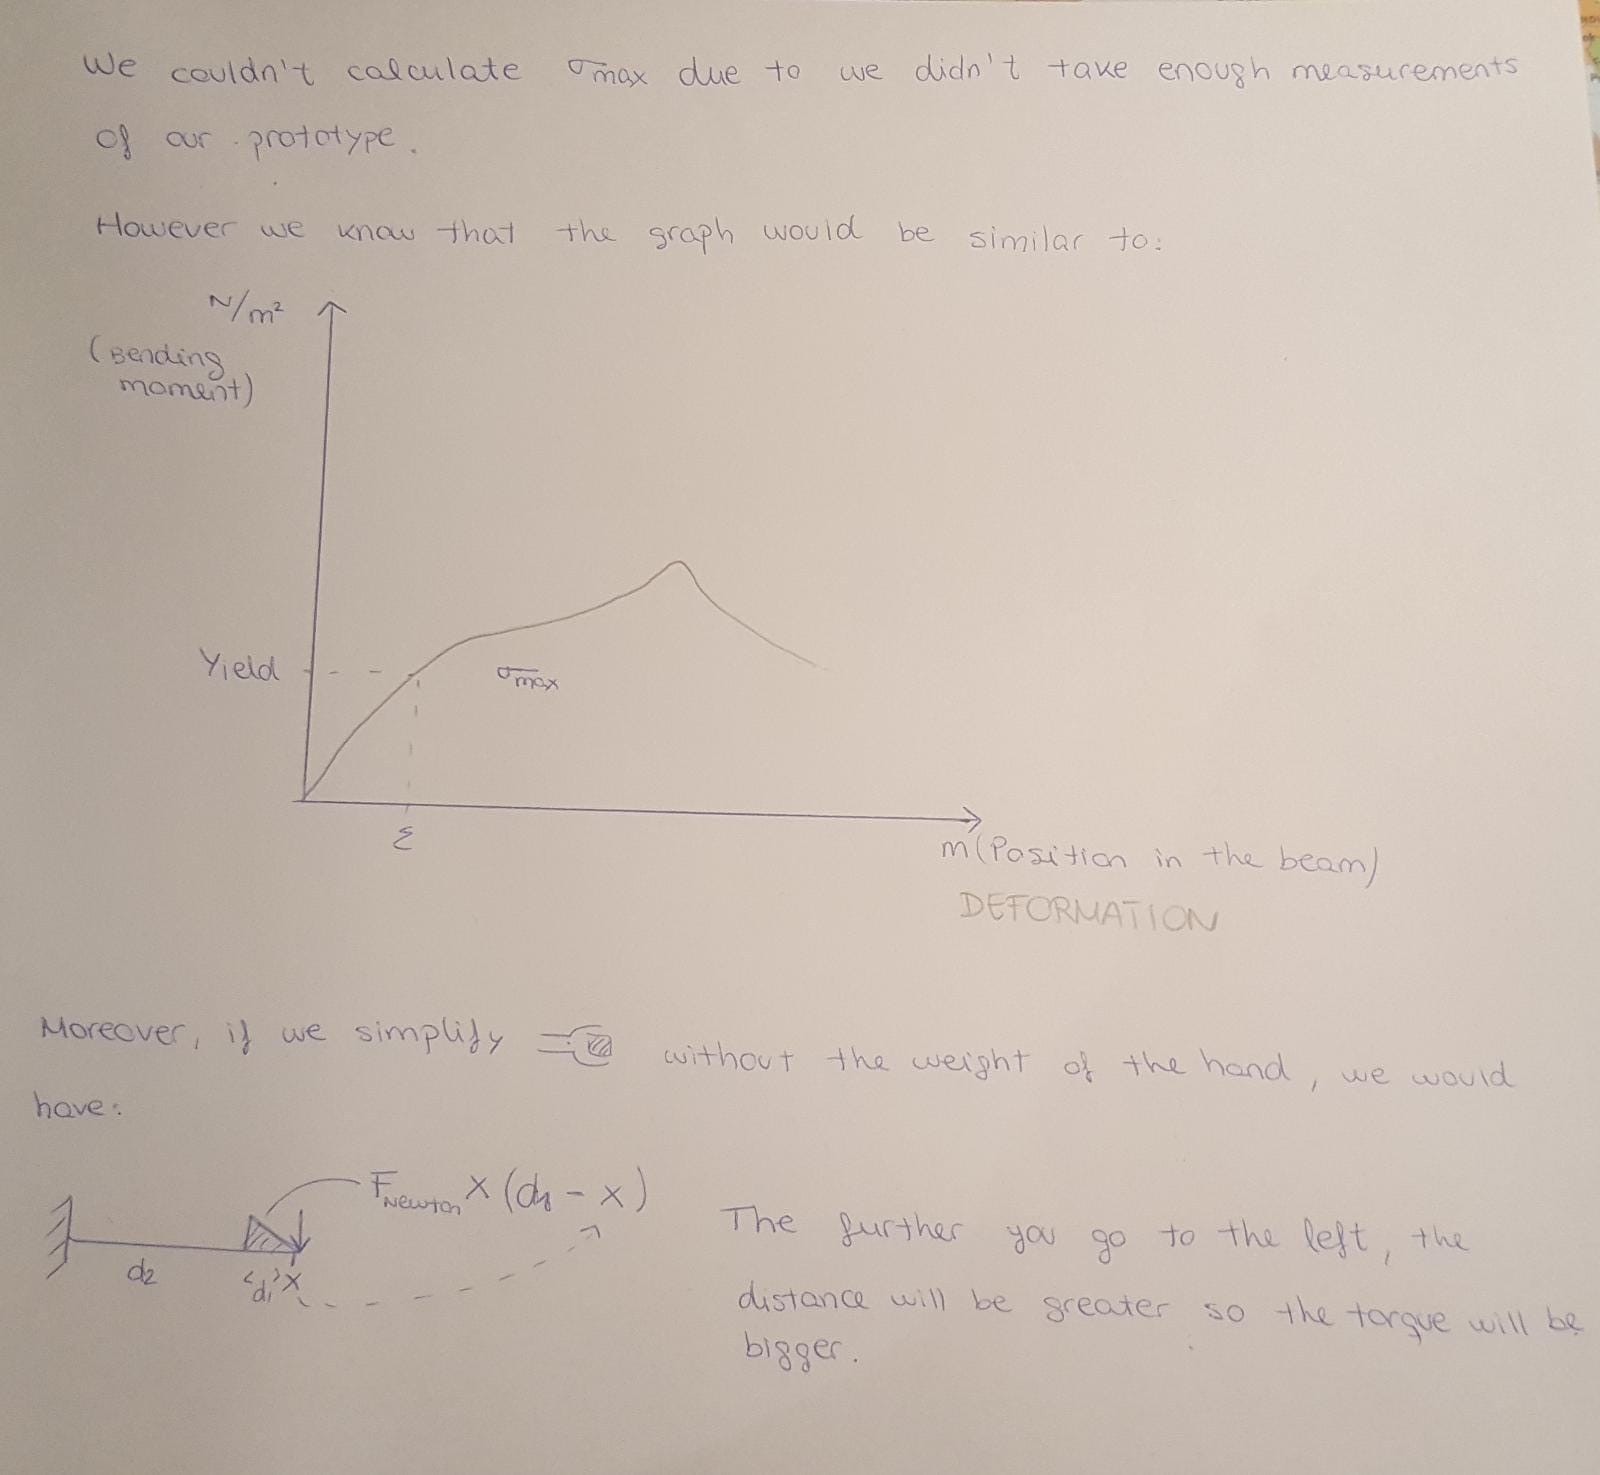 We couldn't calculate σmax due to we didn't take enough measurements
of our prototype.
However we know that the graph would be similar to:
N/m²
(Bending
moment)
Yield
σmax
Σ
m(Position in the beam)
DEFORMATION
Moreover, if we simplify without the weight of the hand, we would
have:
FNewton x (d1 - x)
d2
d1 x
The further you go to the left, the
distance will be greater so the torque will be
bigger.